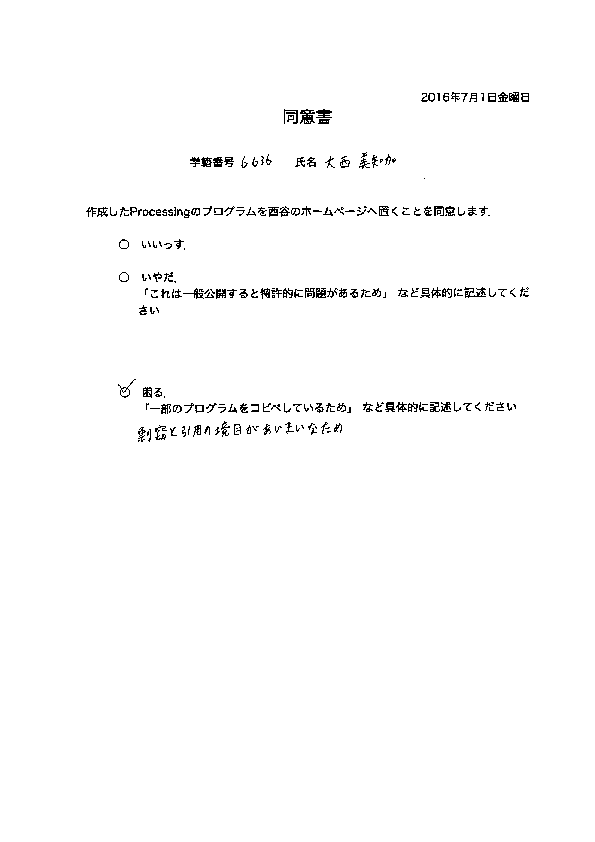 2016年7月1日金曜日
同意書
学籍番号 6636 氏名 大西 美知加
作成したProcessingのプログラムを西谷のホームページへ置くことを同意します.
○ いいっす.
○ いやだ.
「これは一般公開すると特許的に問題があるため」 など具体的に記述してくだ
さい
○ 困る.
「一部のプログラムをコピペしているため」 など具体的に記述してください
剽窃と引用の境目があいまいなため